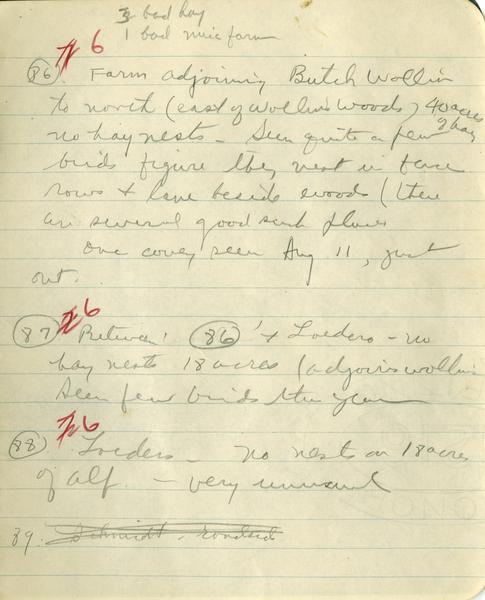 3 bad hay
1 bad misc farm
76
(86) Farm adjoining Butch Wollin
to north (east of Wollins woods) 40 acres of hay
no hay nests - Seen quite a few
birds figure they nest in fence
rows + lane beside woods (there
are several good such places
One covey seen Aug 11, just
out.
76
(87) Between (86) + Loeders - no
hay nests 18 acres (adjoins Wollin
Seen few birds this year
76
(88) Loeders - no nests on 18 acres
of alf - very unusual
89. Schmidt - roadside